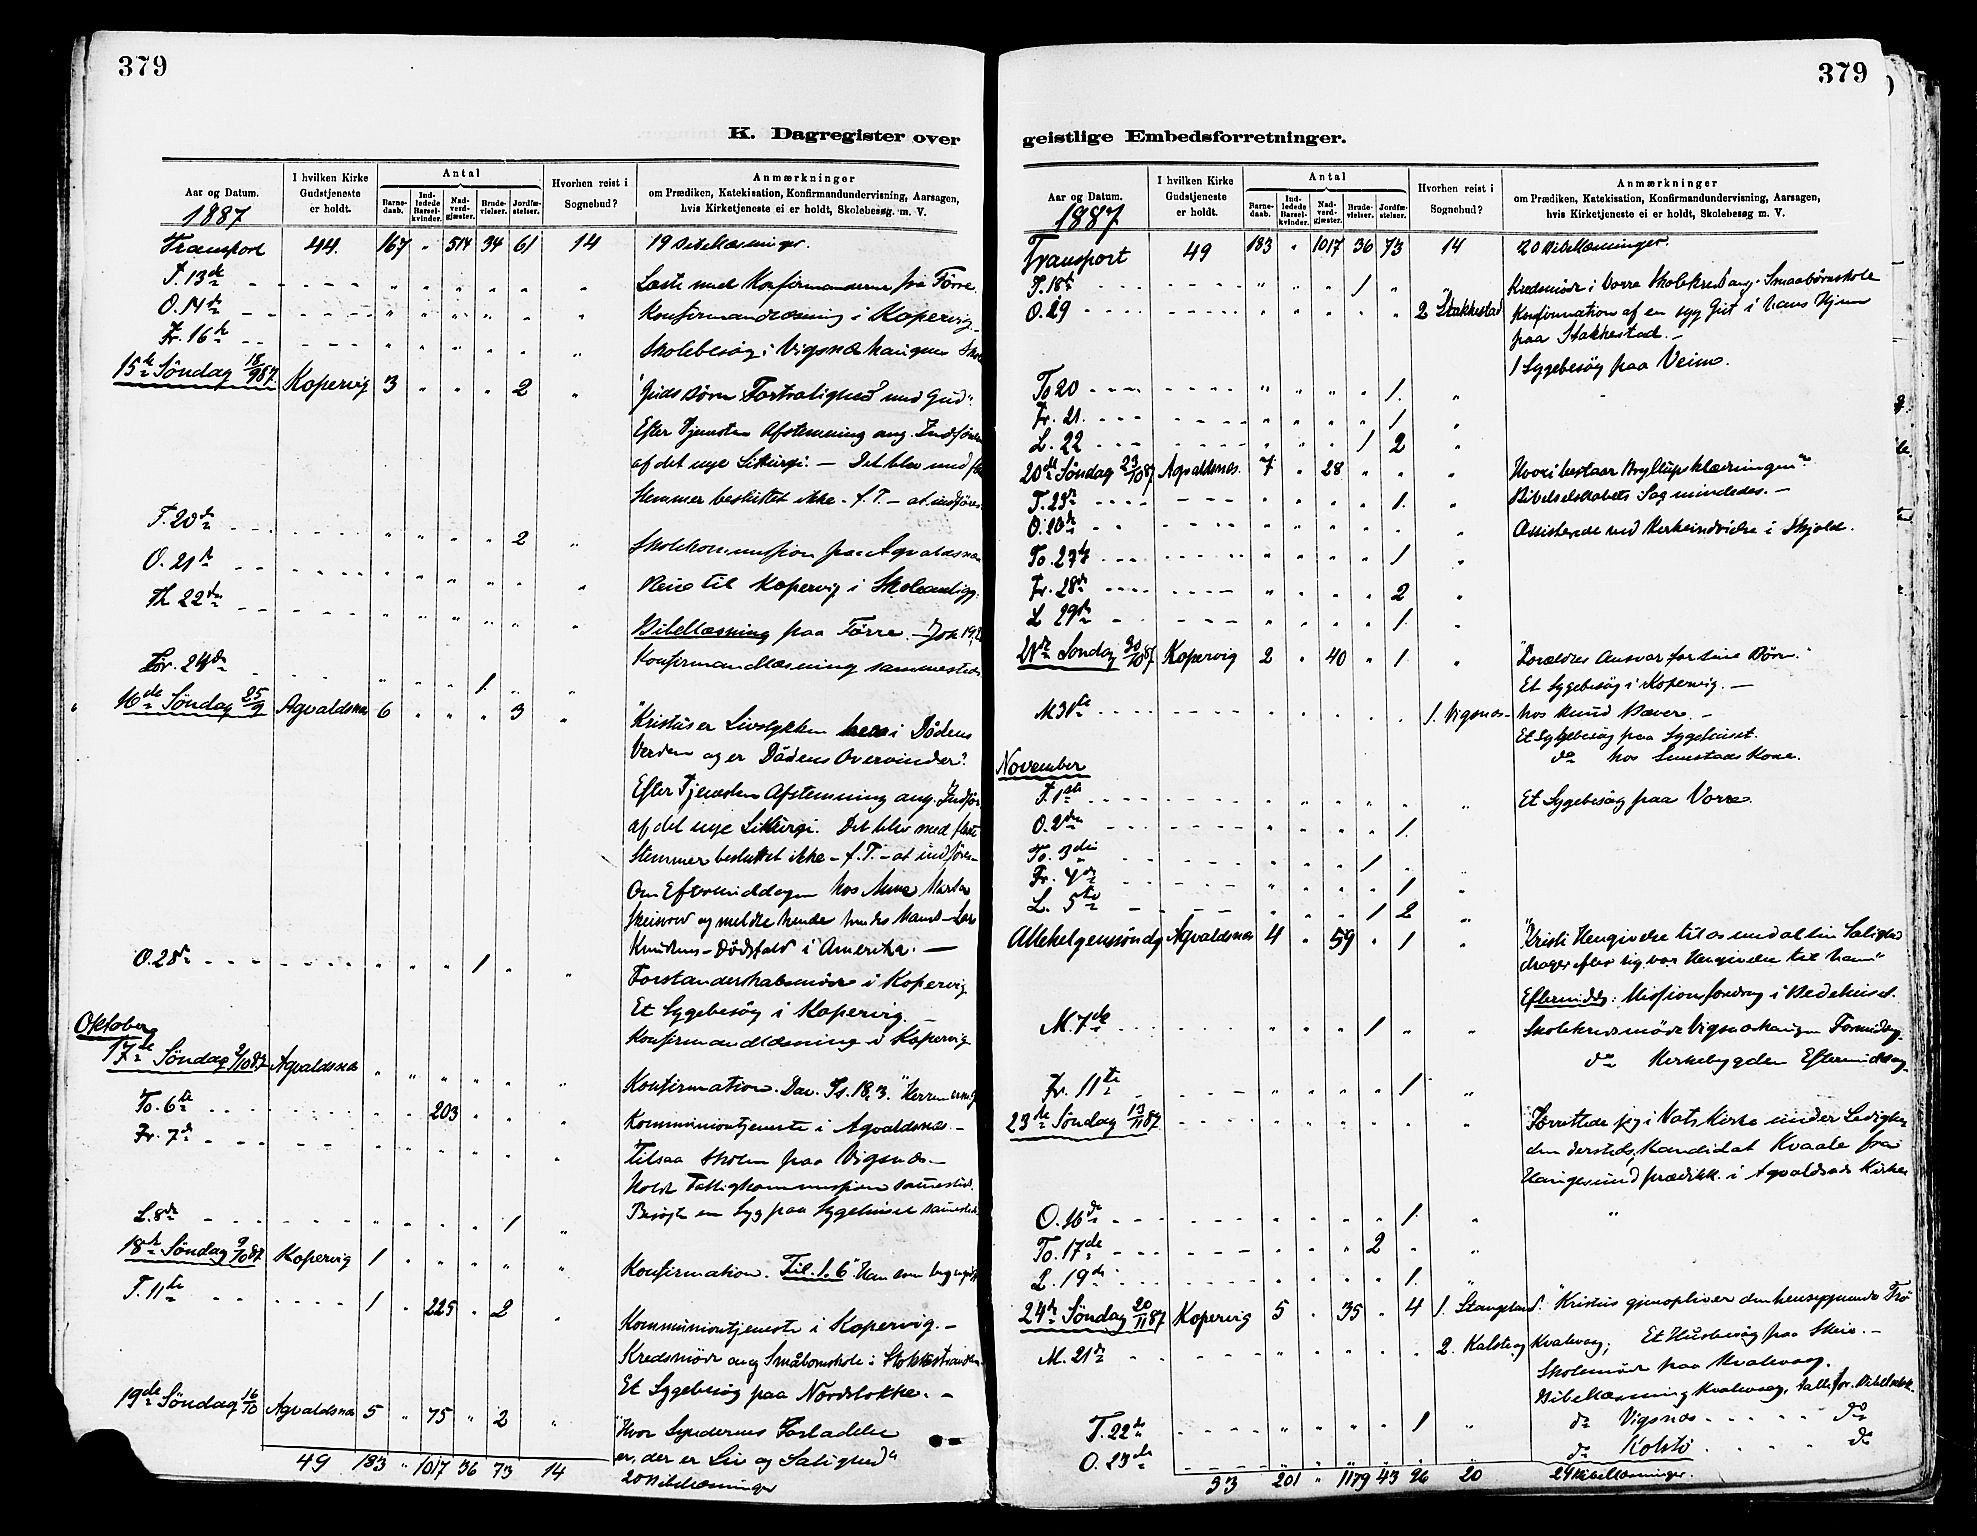 379
K. Dagregister over
Aar og Datum.
1887
I hvilken Kirke Gudstjeneste er holdt.
Antal
Barnedaab.
Indledede Barselkvinder.
Nadverdgjæster.
Brudevielser.
Jordfæstelser.
Hvorhen reist i Sognebud?
Anmærkninger
om Prædiken, Katekisation, Konfirmandundervisning, Aarsagen,
hvis Kirketjeneste ei er holdt, Skolebesøg m. V.
Transport 44. 167 " 514 34 61 14 19 Bibellæsninger.
T. 13de Læste med Konfirmanderne fra Førre.
O. 14de Konfirmandlæsning i Kopervig
Fr. 16de Skolebesøg i Vigsnæshaugens
15de Søndag 18/9 87 Kopervig 3 " " " 2 " Guds Børns Fortrolighed med Gud".
Efter Tjenesten Afstemning ang. Indfør
af det nye Litturgi. – Det blev med
Stemmer besluttet ikke – f. T. – at indføres
T. 20de 2 Skolekommission paa Agvaldsnæs
O. 21de Reise til Kopervig i Skoleanligg.
Th 22den Bibellæsning paa Førre.
Konfirmandlæsning sammesteds
Lør. 24de 1.
16de Søndag 25/9 Agvaldsnæs 6 " " " 3 " "Kristus er Livslykken her i Dødens
Verden og er Dødens Overvinder".
Efter Tjenesten Afstemning ang. Indfør
af det nye Litturgi. Det blev med flest
Stemmer besluttet ikke – f. T. – at indføres –
Om Eftermiddagen hos Anna Marta
og meldte hende hendes Mands – Lars
Knudsens – Dødsfald i Amerika. –
O. 28de 1 Forstanderskabsmøde i Kopervig
Et Sygebesøg i Kopervig. –
Konfirmandlæsning i Kopervig
Oktober
17de Søndag 2/10 87 Agvaldsnæs Konfirmation. Dav. Ps. 18.3. "Herren er
To. 6te 203 Kommuniontjeneste i Agvaldsnæs. –
Fr. 7de Tilsaa Skolen paa Vigsnæs –
Holdt Fattigkommission sammesteds.
Besøgte en Syg paa Sygehuset sammesteds
L. 8de 1
18de Søndag 9/10 87 Kopervig 1 Konfirmation. Fil. 1. 6. "Han som begyndt
T. 11te 1 " 225 " 2 Kommuniontjeneste i Kopervig. –
Kredsmøde ang Småbørnskole i Stokkestranden
Et Sygebesøg paa Nordstokke. –
19de Søndag 16/10 Agvaldsnæs 5 " 75 " 2 "Hvor Syndernes Forladelse
er, der er Liv og Salighed"
49 183 " 1017 36 73 14 20 Bibellæsninger
379
geistlige Embedsforretninger.
Aar og Datum.
1887
I hvilken Kirke Gudstjeneste er holdt.
Antal
Barnedaab.
Indledede Barselkvinder.
Nadverdgjæster.
Brudevielser.
Jordfæstelser.
Hvorhen reist i Sognebud?
Anmærkninger
om Prædiken, Katekisation, Konfirmandundervisning, Aarsagen,
hvis Kirketjeneste ei er holdt, Skolebesøg m. V.
Transport 49 183 " 1017 36 73 14 20 Bibellæsninger.
T. 18de 1 Kredsmøde i Vorra Skolekreds ang. Smaabørnskole
O. 19 2 Stakkestad Konfirmation af en syg Gut i hans Hjem
paa Stakkestad. –
1 Sygebesøg paa Veim.
To 20 1.
Fr. 21. 1
L. 22 1 2
20de Søndag 23/10 87 Agvaldsnæs. 7 " 28 " " " "Hvori bestaar Bryllupsklædningen"
T. 25de 1. Bibelselskabets Sag mindedes. –
O. 26de Assisterede ved Kirkeindvielse i Skjold.
To. 27de 1
Fr. 28de 2
L 29de 1.
21de Søndag 30/10 87 Kopervig 2 " 40 " 1. "Forældres Ansvar for sine Børn."
Et Sygebesøg i Kopervig. –
M 31te 1. Vigsnæs – hos Knud Bævre. –
Et Sygebesøg paa Sygehuset.
do hos Kone.
November
T. 1ste Et Sygebesøg paa Vorre.
O. 2den 1.
To. 3die 1
Fr. 4de 1
L. 5te 1 2
Allehelgensøndag Agvaldsnæs 4 " 59 " 1 " "Kristi Hengivelse til os med al sin Salighed
drager efter sig vor Hengivelse til ham"
Eftermiddg: Missionsforedrag i Bedehuset.
M. 7de 1 Skolekredsmøde Vigsnæshaugen Formiddag.
do Kirkebygden Eftermiddag
Fr. 11te 1
23de Søndag 13/11 87 Forrettede jeg i Vats Kirke under Ledighe
den dersteds, Kandidat Kvaale fra
Haugesund prædik. i Agvaldsnæs Kirke
O. 16de 1.
To. 17de 2
L. 19de 1.
24de Søndag 20/11 87 Kopervig 5 " 35 " 4 1. Stangeland. "Kristus gjenopliver den hensygnende Tro
M. 21de 2. Kalstø og Kvalavaag; Et Husbesøg paa Skeie. –
Skolemøde paa Kvalavaag.
Bibellæsning Kvalavaag,
T. 22de 1 do Vigsnæs do
O. 23de do Kolstø do
53 201 " 1179 43 96 20 24 Bibellæsninger.